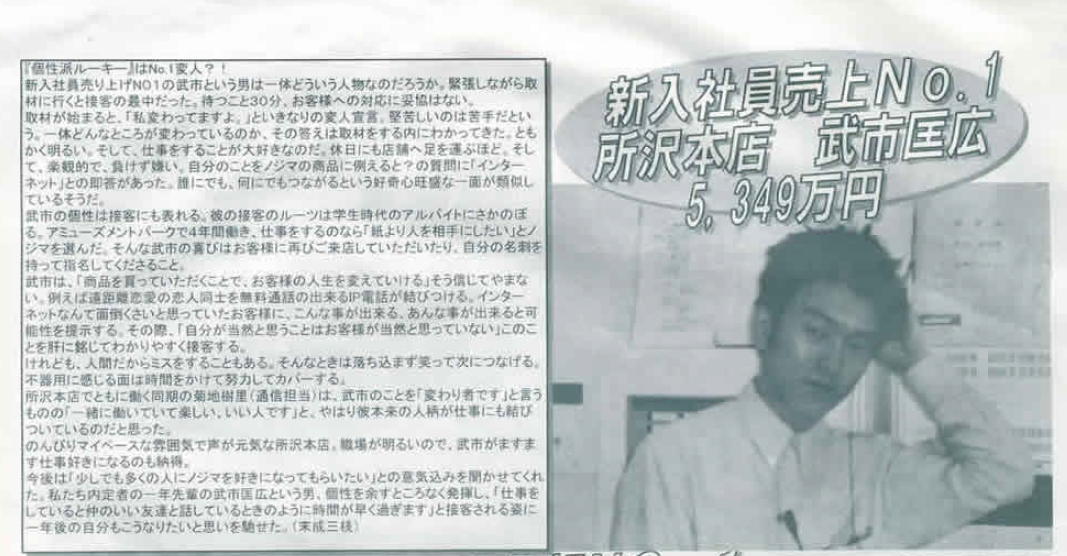 『個性派ルーキー』はNo.1変人？！
新入社員売り上げNO1の武市という男は一体どういう人物なのだろうか。緊張しながら取
材に行くと接客の最中だった。待つこと30分、お客様への対応に妥協はない。
取材が始まると、「私変わってますよ。」といきなりの変人宣言。堅苦しいのは苦手だとい
う。一体どんなところが変わっているのか、その答えは取材をする内にわかってきた。とも
かく明るい。そして、仕事をすることが大好きなのだ。休日にも店舗へ足を運ぶほど。そし
て、楽観的で、負けず嫌い。自分のことをノジマの商品に例えると？の質問に「インター
ネット」との即答があった。誰にでも、何にでもつながるという好奇心旺盛な一面が類似し
ているそうだ。
武市の個性は接客にも表れる。彼の接客のルーツは学生時代のアルバイトにさかのぼ
る。アミューズメントパークで4年間働き、仕事をするのなら「紙より人を相手にしたい」とノ
ジマを選んだ。そんな武市の喜びはお客様に再びご来店していただいたり、自分の名刺を
持って指名してくださること。
武市は、「商品を買っていただくことで、お客様の人生を変えていける」そう信じてやまな
い。例えば遠距離恋愛の恋人同士を無料通話の出来るIP電話が結びつける。インター
ネットなんて面倒くさいと思っていたお客様に、こんな事が出来る、あんな事が出来ると可
能性を提示する。その際、「自分が当然と思うことはお客様が当然と思っていない」このこ
とを肝に銘じてわかりやすく接客する。
けれども、人間だからミスをすることもある。そんなときは落ち込まず笑って次につなげる。
不器用に感じる面は時間をかけて努力してカバーする。
所沢本店でともに働く同期の菊地樹里（通信担当）は、武市のことを「変わり者です」と言う
ものの「一緒に働いていて楽しい、いい人です」と、やはり彼本来の人柄が仕事にも結び
ついているのだと思った。
のんびりマイペースな雰囲気で声が元気な所沢本店。職場が明るいので、武市がますま
す仕事好きになるのも納得。
今後は「少しでも多くの人にノジマを好きになってもらいたい」との意気込みを聞かせてくれ
た。私たち内定者の一年先輩の武市匡広という男、個性を余すところなく発揮し、「仕事を
していると仲のいい友達と話しているときのように時間が早く過ぎます」と接客される姿に
一年後の自分もこうなりたいと思いを馳せた。（末成三枝）
新入社員売上No.1
所沢本店　武市匡広
5,349万円